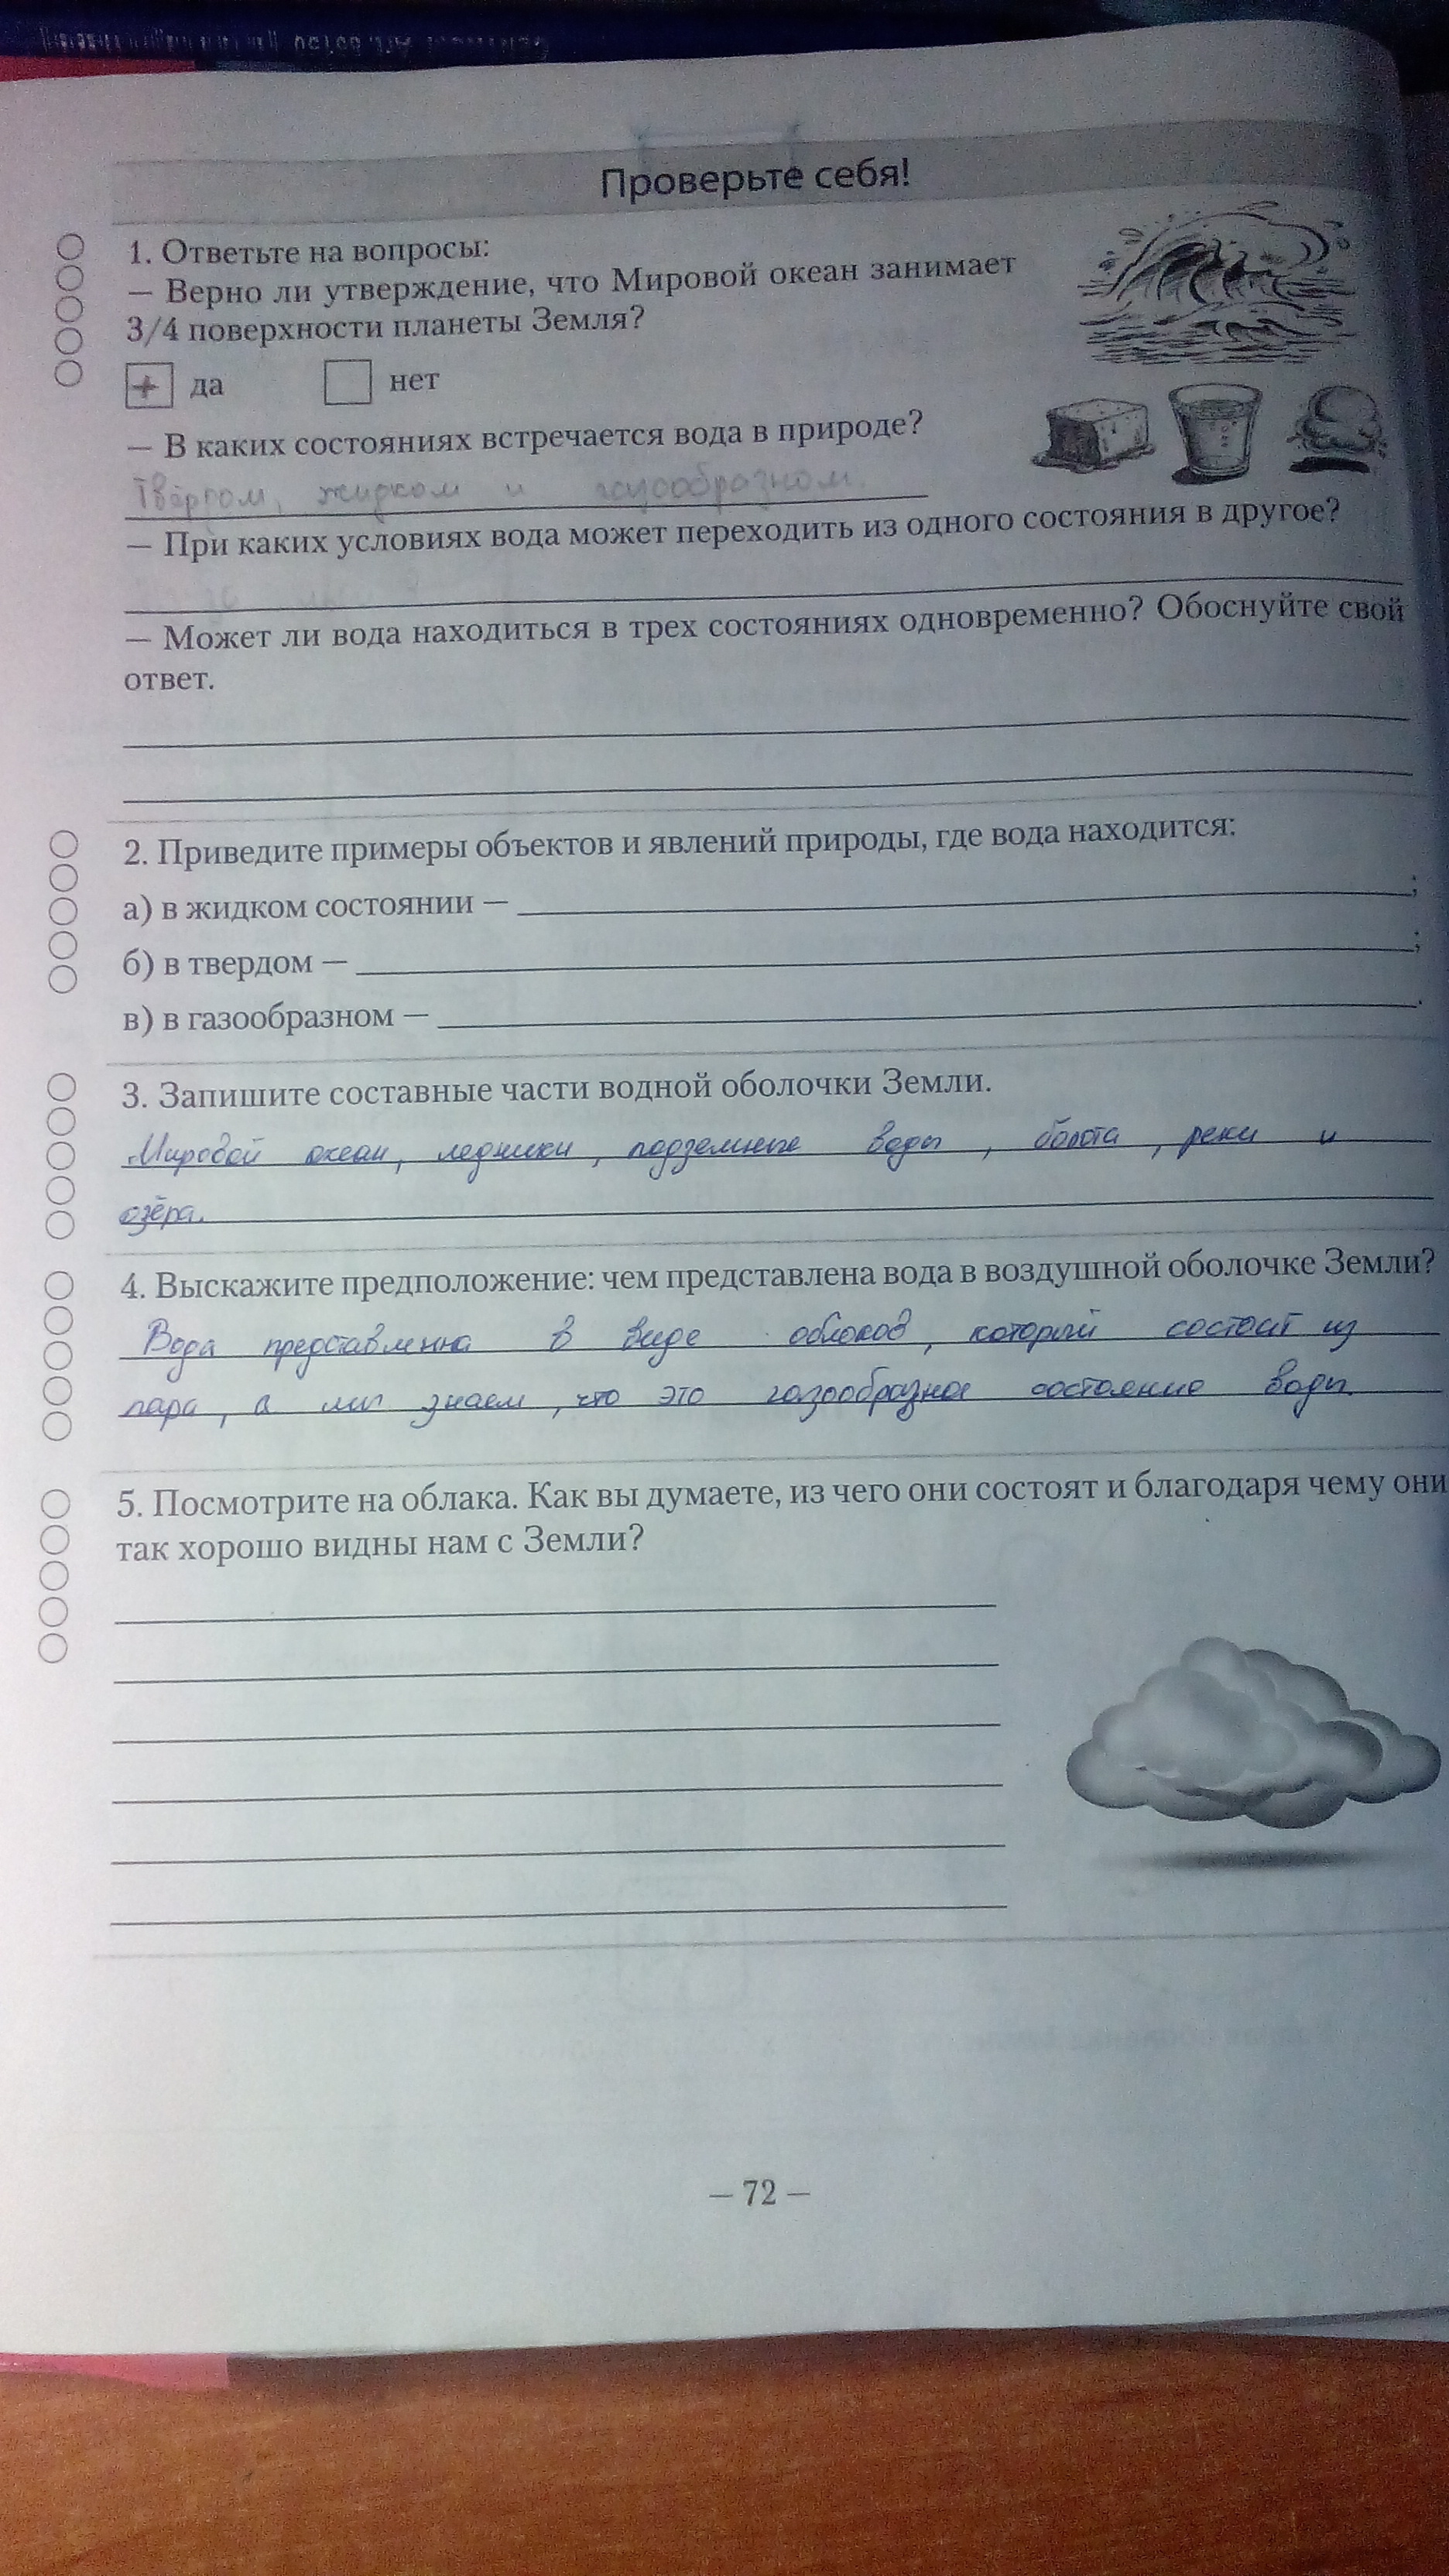 Проверьте себя!
1. Ответьте на вопросы:
— Верно ли утверждение, что Мировой океан занимает
3/4 поверхности планеты Земля?
+ да нет
— В каких состояниях встречается вода в природе?
Твёргом, жидком и газообразном.
— При каких условиях вода может переходить из одного состояния в другое?
— Может ли вода находиться в трех состояниях одновременно? Обоснуйте свой
ответ.
2. Приведите примеры объектов и явлений природы, где вода находится:
а) в жидком состоянии — ;
б) в твердом — ;
в) в газообразном — .
3. Запишите составные части водной оболочки Земли.
Мировой океан, ледники, подземные воды, болота, реки и
озёра.
4. Выскажите предположение: чем представлена вода в воздушной оболочке Земли?
Вода представленна в виде облоков, который состоит из
пара, а мы знаем, что это газообразное состояние воды.
5. Посмотрите на облака. Как вы думаете, из чего они состоят и благодаря чему они
так хорошо видны нам с Земли?
— 72 —